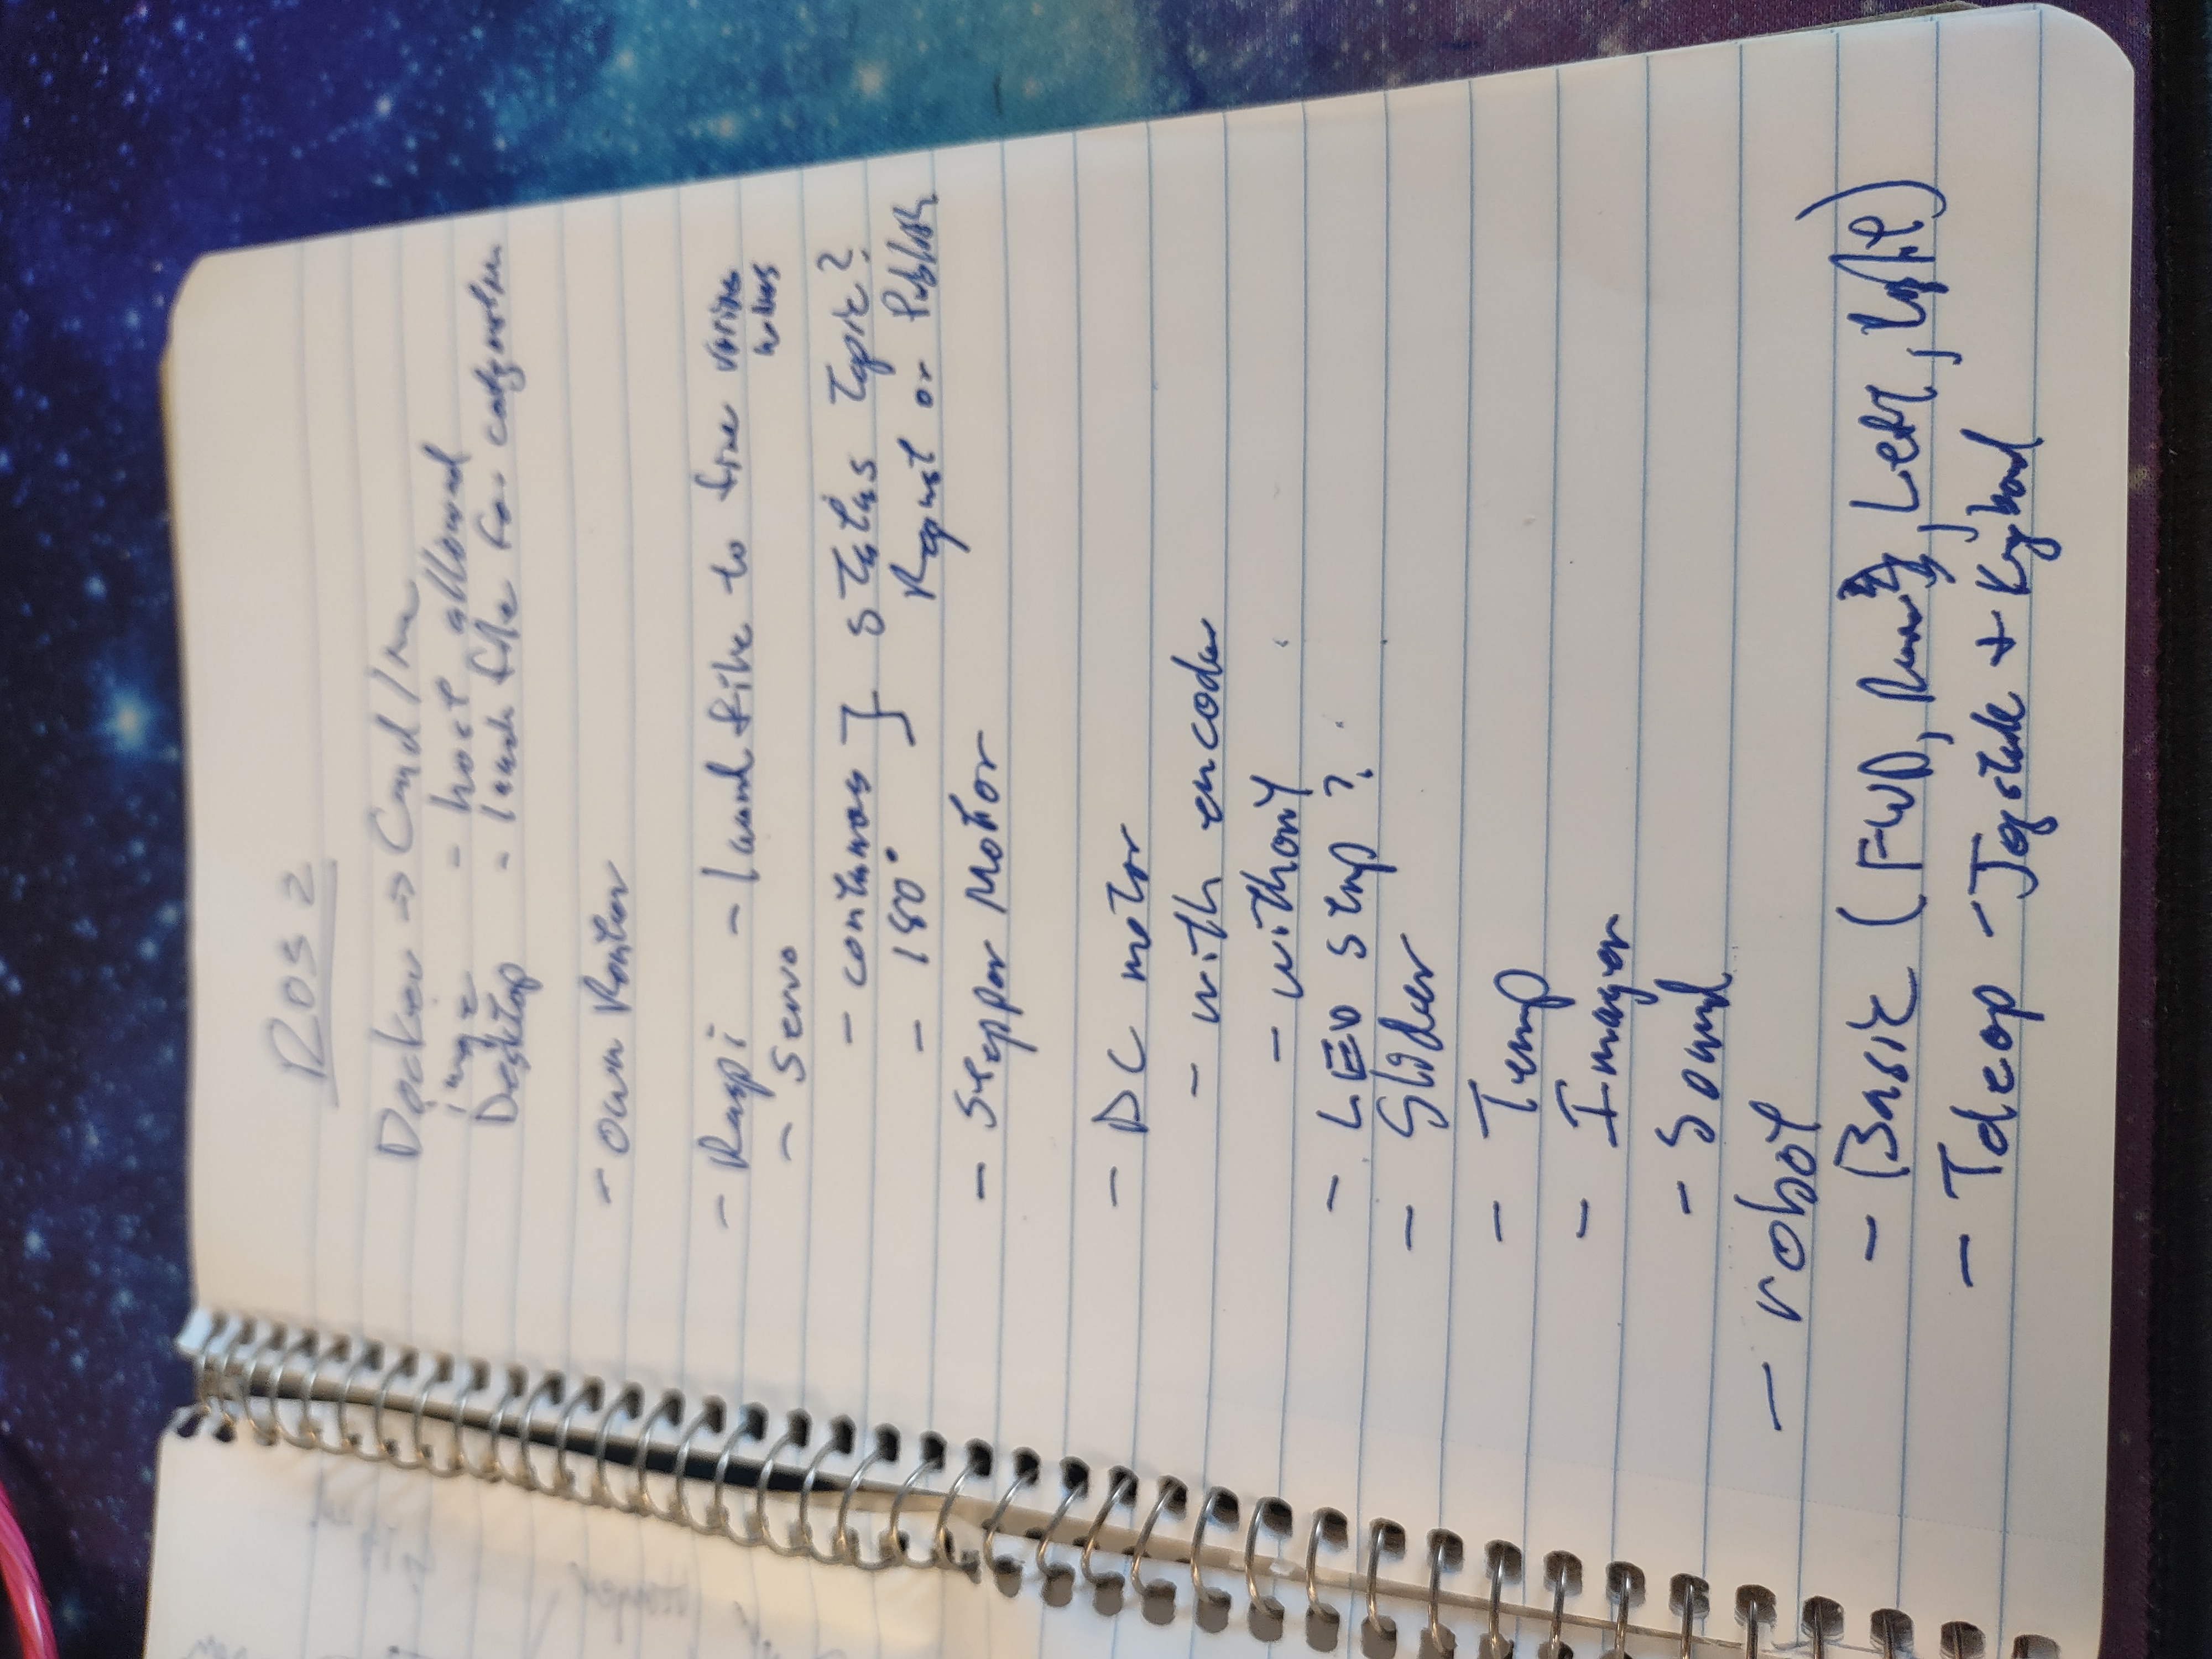 ROS 2
Docker → Cmd / run
image - host allowed
Desktop - launch file for
- Own Router
- Raspi - launch file to fire various nodes
- Servo
- continuous } status topic?
- 180° Request or Publish
- Stepper Motor
- DC motor
- with encoder
- without
- LED strip ?
- Slider
- Temp
- Imager
- Sound
- robot
- Basic (FWD, , Left, Right)
- Teleop - Joystick + Keyboard